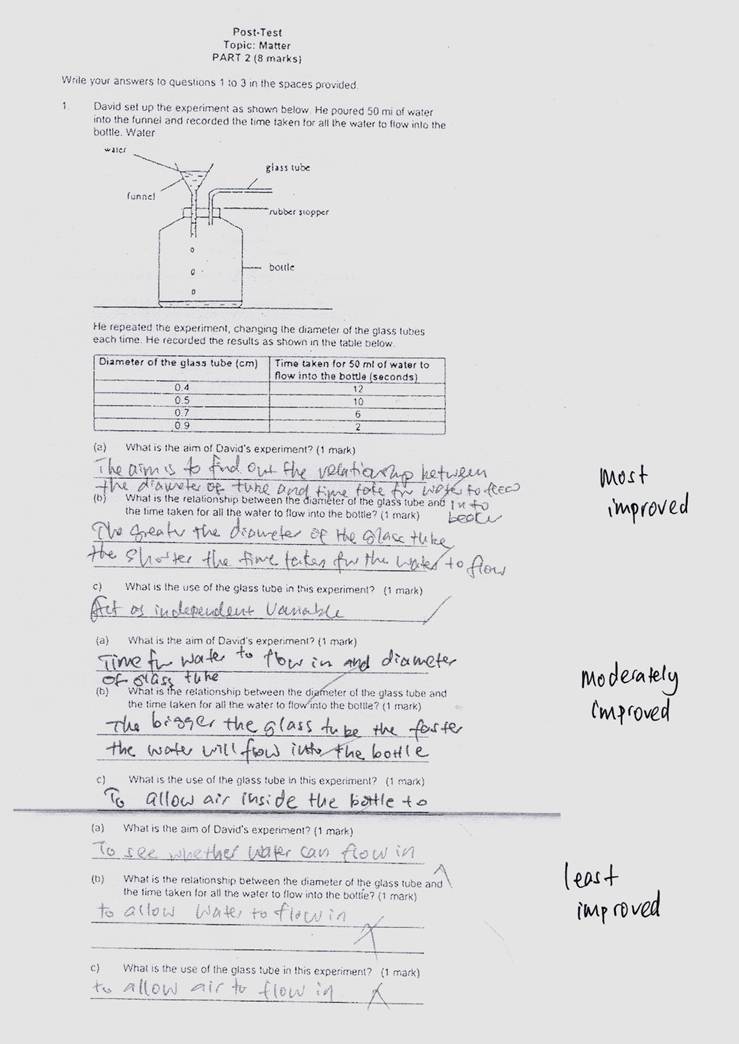 Post-Test
Topic: Matter
PART 2 (8 marks)
Write your answers to questions 1 to 3 in the spaces provided.
1. David set up the experiment as shown below. He poured 50 ml of water
into the funnel and recorded the time taken for all the water to flow into the
bottle. Water
water
glass tube
funnel
rubber stopper
bottle
He repeated the experiment, changing the diameter of the glass tubes
each time. He recorded the results as shown in the table below.
Diameter of the glass tube (cm) Time taken for 50 ml of water to
flow into the bottle (seconds)
0.4 12
0.5 10
0.7 6
0.9 2
(a) What is the aim of David's experiment? (1 mark)
The aim is to find out the relationship between
the diameter of tube and time take for water to flow
into
beaker
(b) What is the relationship between the diameter of the glass tube and
the time taken for all the water to flow into the bottle? (1 mark)
The greater the diameter of the glass tube
the shorter the time taken for the water to flow
c) What is the use of the glass tube in this experiment? (1 mark)
Act as independent variable
most
improved
(a) What is the aim of David's experiment? (1 mark)
Time for water to flow in and diameter
of glass tube
(b) What is the relationship between the diameter of the glass tube and
the time taken for all the water to flow into the bottle? (1 mark)
The bigger the glass tube the faster
the water will flow into the bottle
c) What is the use of the glass tube in this experiment? (1 mark)
To allow air inside the bottle to
moderately
improved
(a) What is the aim of David's experiment? (1 mark)
To see whether water can flow in
(b) What is the relationship between the diameter of the glass tube and
the time taken for all the water to flow into the bottle? (1 mark)
to allow water to flow in
c) What is the use of the glass tube in this experiment? (1 mark)
to allow air to flow in
least
improved